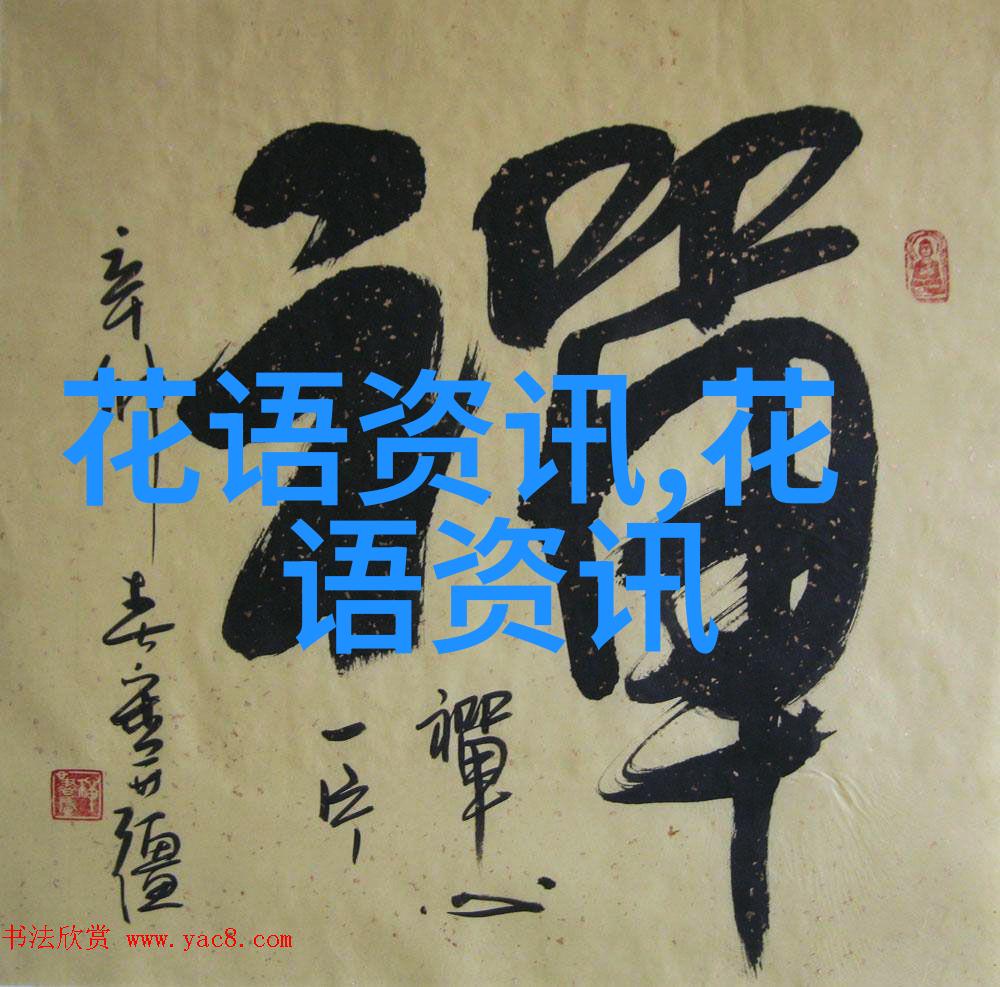 禪
禪心
一片
辛卯春
花语资讯,花
语资讯
书法欣赏 www.yac8.com